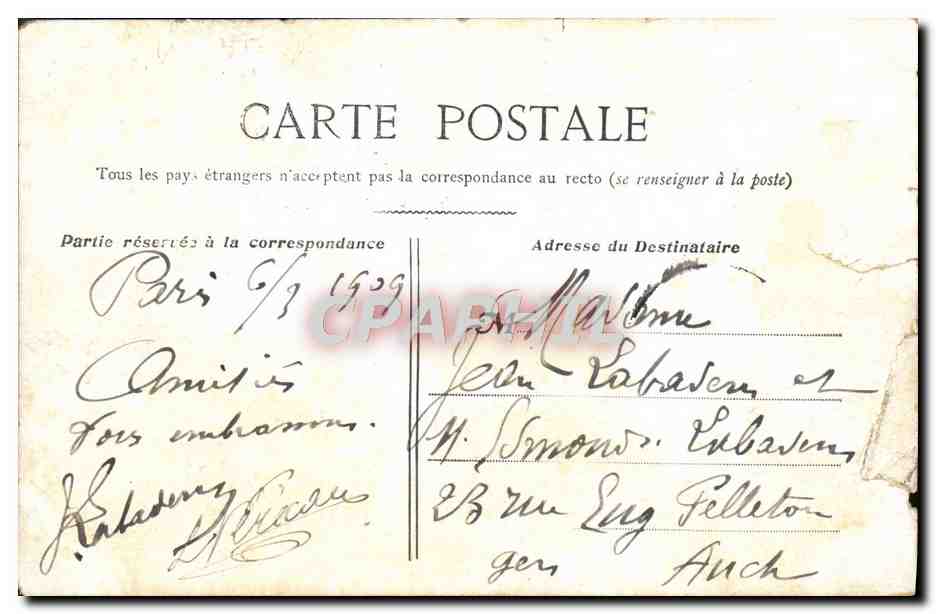 CARTE POSTALE
Tous les pays étrangers n'acceptent pas la correspondance au recto (se renseigner à la poste)
Partie réservée à la correspondance
Paris 6/3 1909
Amitiés
embrassons.
J. Labadens
Adresse du Destinataire
Madame
Jean Labadens et
M. Edmond Labadens
23 rue Eug Pelletan
Gers Auch
CPARHIL